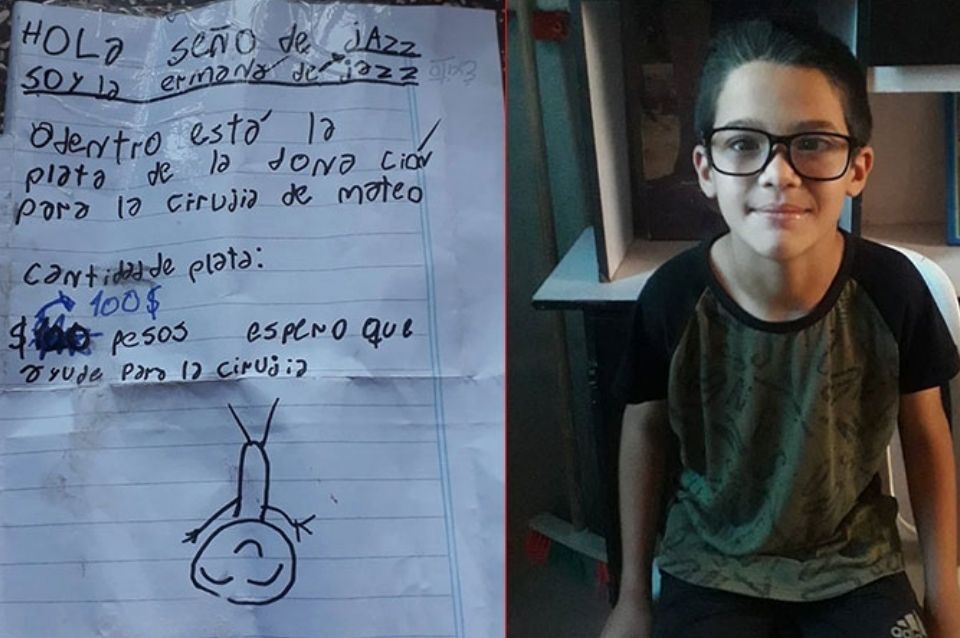 HOLA SEÑO de jAZZ
SOY la ermana de jazz
Adentro está la
plata de la dona ción
para la cirujia de mateo
cantidad de plata:
100$
$ pesos espero que
ayude para la cirujia